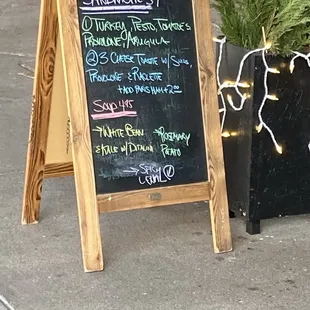 ① TURKEY, PESTO, TOMATOES
PROVOLONE, ARUGULA
② 3 CHEESE TOASTIE W/
PROVOLONE & RACLETTE
ADD PARIS HAM +2.00
SOUP 4.95
→ WHITE BEAN
& KALE W/ DITALINI
→ ROSEMARY
POTATO
→ SPICY
LENTIL Ⓥ